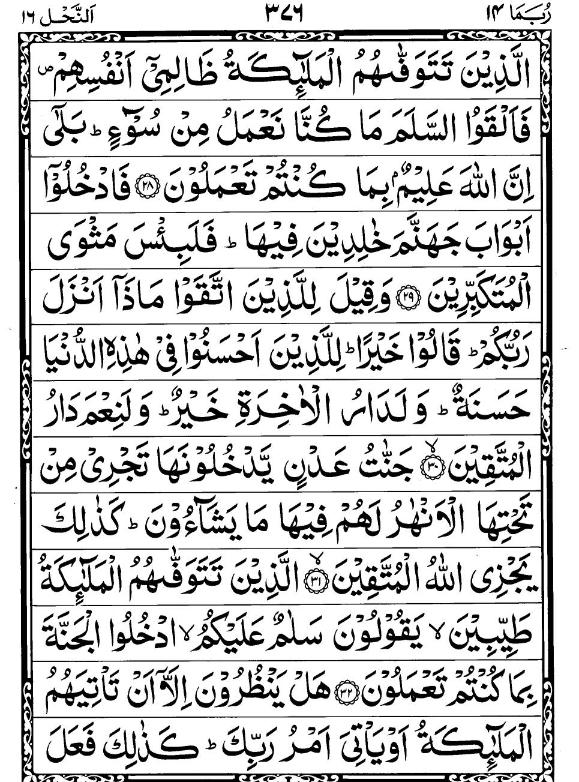 رُبَمَا ١٤ ٣٧٦ اَلنَّحْل ١٦
الَّذِيْنَ تَتَوَفّٰىهُمُ الْمَلٰٓئِكَةُ ظَالِمِيْۤ اَنْفُسِهِمْ ۪
فَاَلْقَوُا السَّلَمَ مَا كُنَّا نَعْمَلُ مِنْ سُوْٓءٍ ؕ بَلٰۤى
اِنَّ اللّٰهَ عَلِيْمٌۢ بِمَا كُنْتُمْ تَعْمَلُوْنَ ﴿۲۸﴾ فَادْخُلُوْۤا
اَبْوَابَ جَهَنَّمَ خٰلِدِيْنَ فِيْهَا ؕ فَلَبِئْسَ مَثْوَى
الْمُتَكَبِّرِيْنَ ﴿۲۹﴾ وَقِيْلَ لِلَّذِيْنَ اتَّقَوْا مَاذَاۤ اَنْزَلَ
رَبُّكُمْ ؕ قَالُوْا خَيْرًا ؕ لِلَّذِيْنَ اَحْسَنُوْا فِيْ هٰذِهِ الدُّنْيَا
حَسَنَةٌ ؕ وَلَدَارُ الْاٰخِرَةِ خَيْرٌ ؕ وَلَنِعْمَ دَارُ
الْمُتَّقِيْنَ ۙ﴿۳۰﴾ جَنّٰتُ عَدْنٍ يَّدْخُلُوْنَهَا تَجْرِيْ مِنْ
تَحْتِهَا الْاَنْهٰرُ لَهُمْ فِيْهَا مَا يَشَآءُوْنَ ؕ كَذٰلِكَ
يَجْزِي اللّٰهُ الْمُتَّقِيْنَ ۙ﴿۳۱﴾ الَّذِيْنَ تَتَوَفّٰىهُمُ الْمَلٰٓئِكَةُ
طَيِّبِيْنَ ۙ يَقُوْلُوْنَ سَلٰمٌ عَلَيْكُمُ ۙ ادْخُلُوا الْجَنَّةَ
بِمَا كُنْتُمْ تَعْمَلُوْنَ ﴿۳۲﴾ هَلْ يَنْظُرُوْنَ اِلَّاۤ اَنْ تَاْتِيَهُمُ
الْمَلٰٓئِكَةُ اَوْ يَاْتِيَ اَمْرُ رَبِّكَ ؕ كَذٰلِكَ فَعَلَ